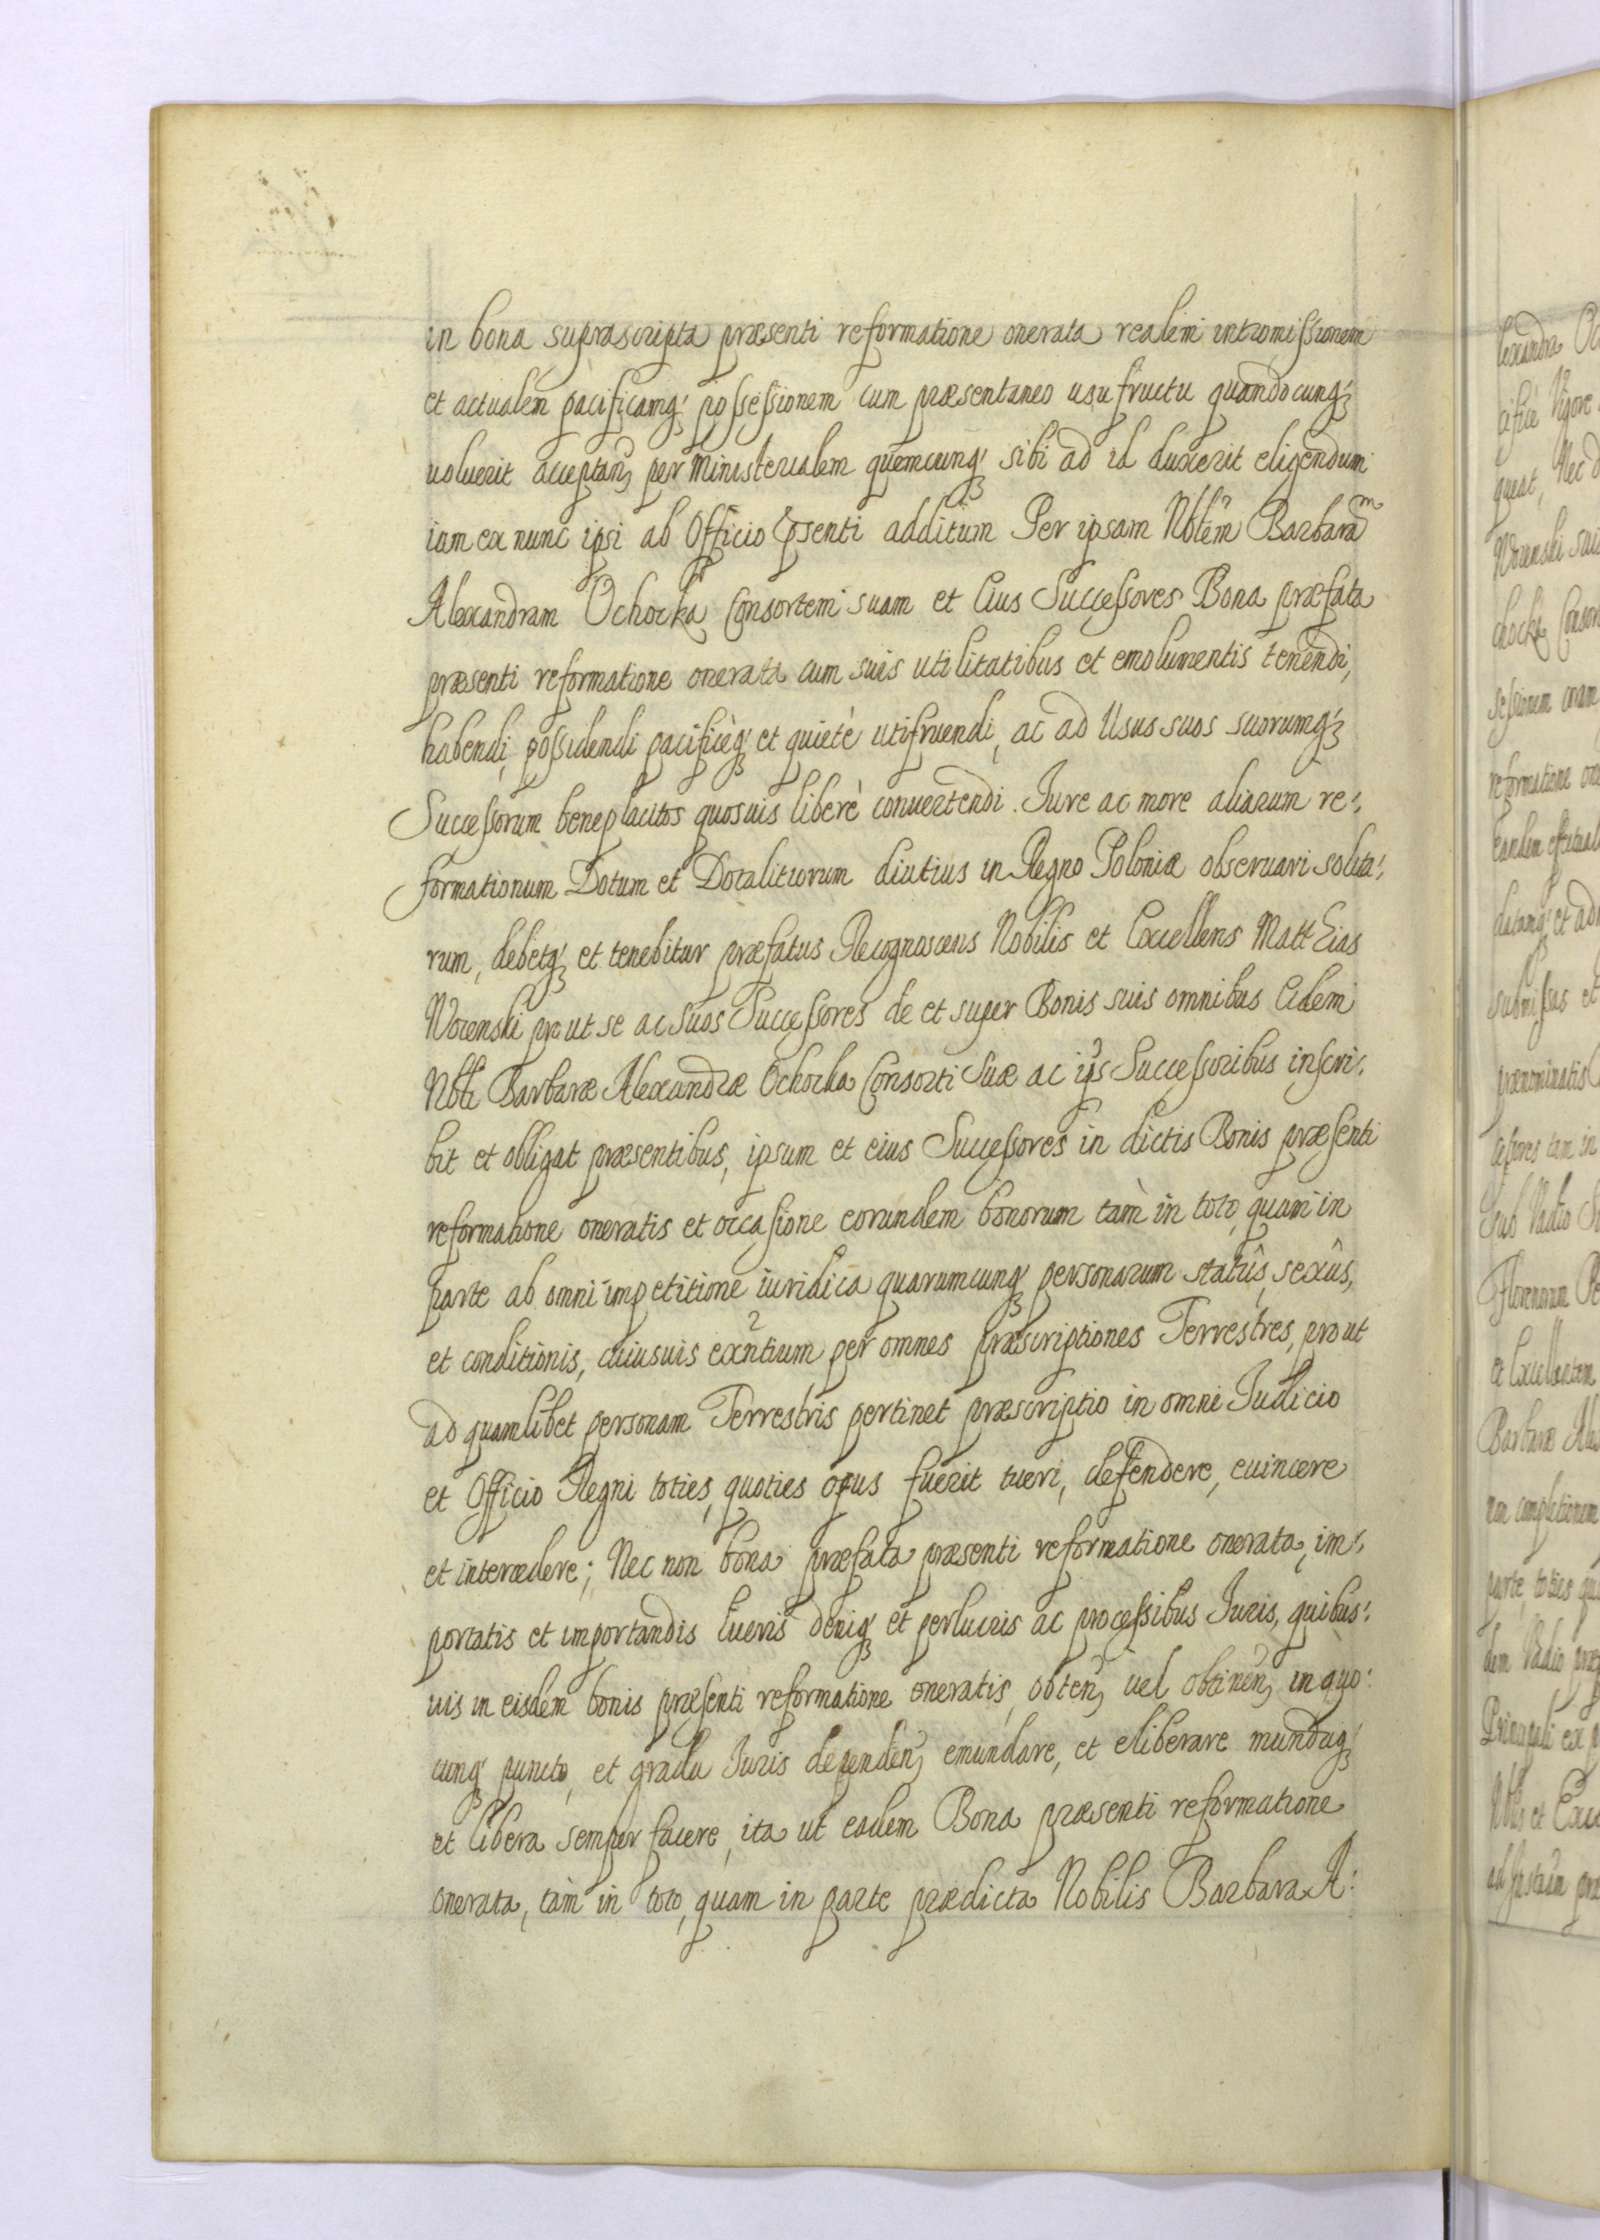 in bona suprascripta præsenti reformatione onerata realem intromissionem
et actualem pacificamq; possessionem cum præsentaneo usufructu quandocunq;
voluerit acceptan, per Ministerialem quemcunq; sibi ad id duxerit eligendum
iam ex nunc ipsi ab Officio pśenti additum Per ipsam Nblem Barbaram
Alexandram Ochocka Consortem suam et Eius Successores Bona præfata
præsenti reformatione onerata cum suis utilitatibus et emolumentis tenendi,
habendi, possidendi pacificèq; et quietè utifruendi, ac ad Usus suos suorumq;
Successorum beneplacitos quosuis liberè conuertendi. Iure ac more aliarum re-
formationum Dotum et Dotalitiorum diutius in Regno Poloniæ obseruari solita-
rum, debetq; et tenebitur præfatus Recognoscens Nobilis et Excellens Matthias
Worenski prout se ac suos Successores de et super Bonis suis omnibus Eidem
Nbli Barbaræ Alexandræ Ochocka Consorti Suæ ac ipś Successoribus inscri-
bit et obligat præsentibus, ipsum et eius Successores in dictis Bonis præsenti
reformatione oneratis et occasione eorundem bonorum tàm in toto, quam in
parte ab omni impetitione iuridica quarumcunq; personarum statûs, sexûs,
et conditionis, cuiusuis exntium per omnes præscriptiones Terrestres, prout
ad quamlibet personam Terrestris pertinet præscriptio in omni Iudicio
et Officio Regni toties, quoties opus fuerit tueri, defendere, euincere
et intercedere; Nec non bona præfata præsenti reformatione onerata, im-
portatis et importandis lucris deniq; et perlucris ac processibus Iuris, quibus-
uis in eisdem bonis præsenti reformatione oneratis, obten, uel obtinen, in quo-
cunq; puncto, et gradu Iuris dependen, emundare, et eliberare mundaq;
et libera semper facere, ita ut eadem Bona præsenti reformatione
onerata, tàm in toto, quam in parte prædicta Nobilis Barbara A: